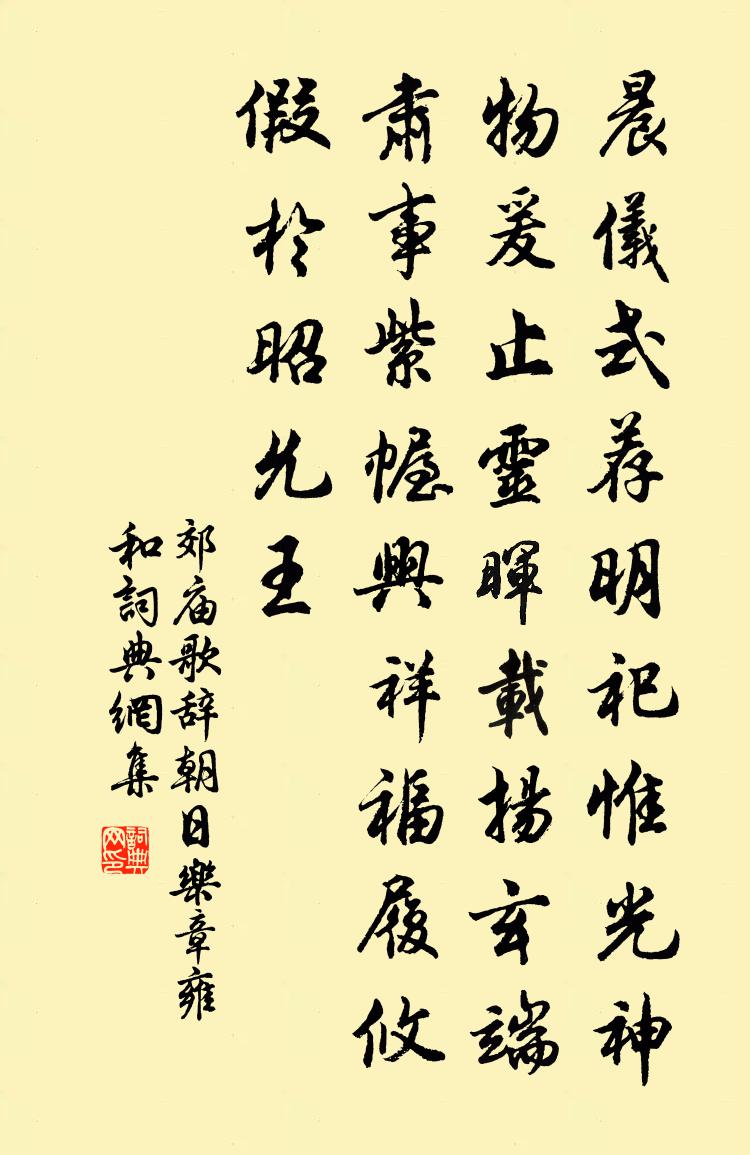 晨儀式荐明祀惟光神
物爰止靈暉載揚玄端
肅事紫幄興祥福履攸
假於昭允王
郊庙歌辞朝日樂章雍
和詞典網集
詞典网印